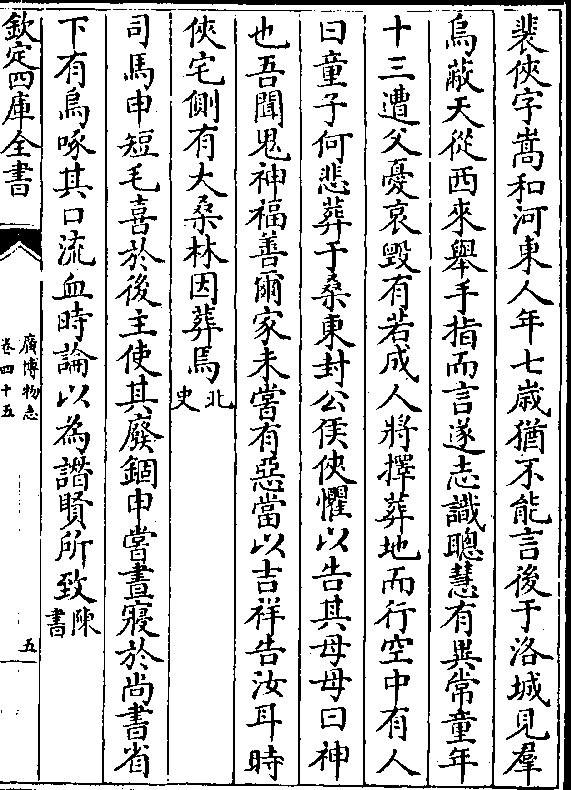 裴俠字嵩和河東人年七歲猶不能言後于洛城見羣
烏蔽天從西來舉手指而言遂志識聰慧有異常童年
十三遭父憂哀毀有若成人將擇葬地而行空中有人
曰童子何悲葬于桑東封公侯俠懼以告其母母曰神
也吾聞鬼神福善爾家未嘗有惡當以吉祥告汝耳時
俠宅側有大桑林因葬焉北史
司馬申短毛喜於後主使其廢錮申嘗晝寢於尚書省
下有烏啄其口流血時論以為譖賢所致陳書
欽定四庫全書
廣博物志
卷四十五
五